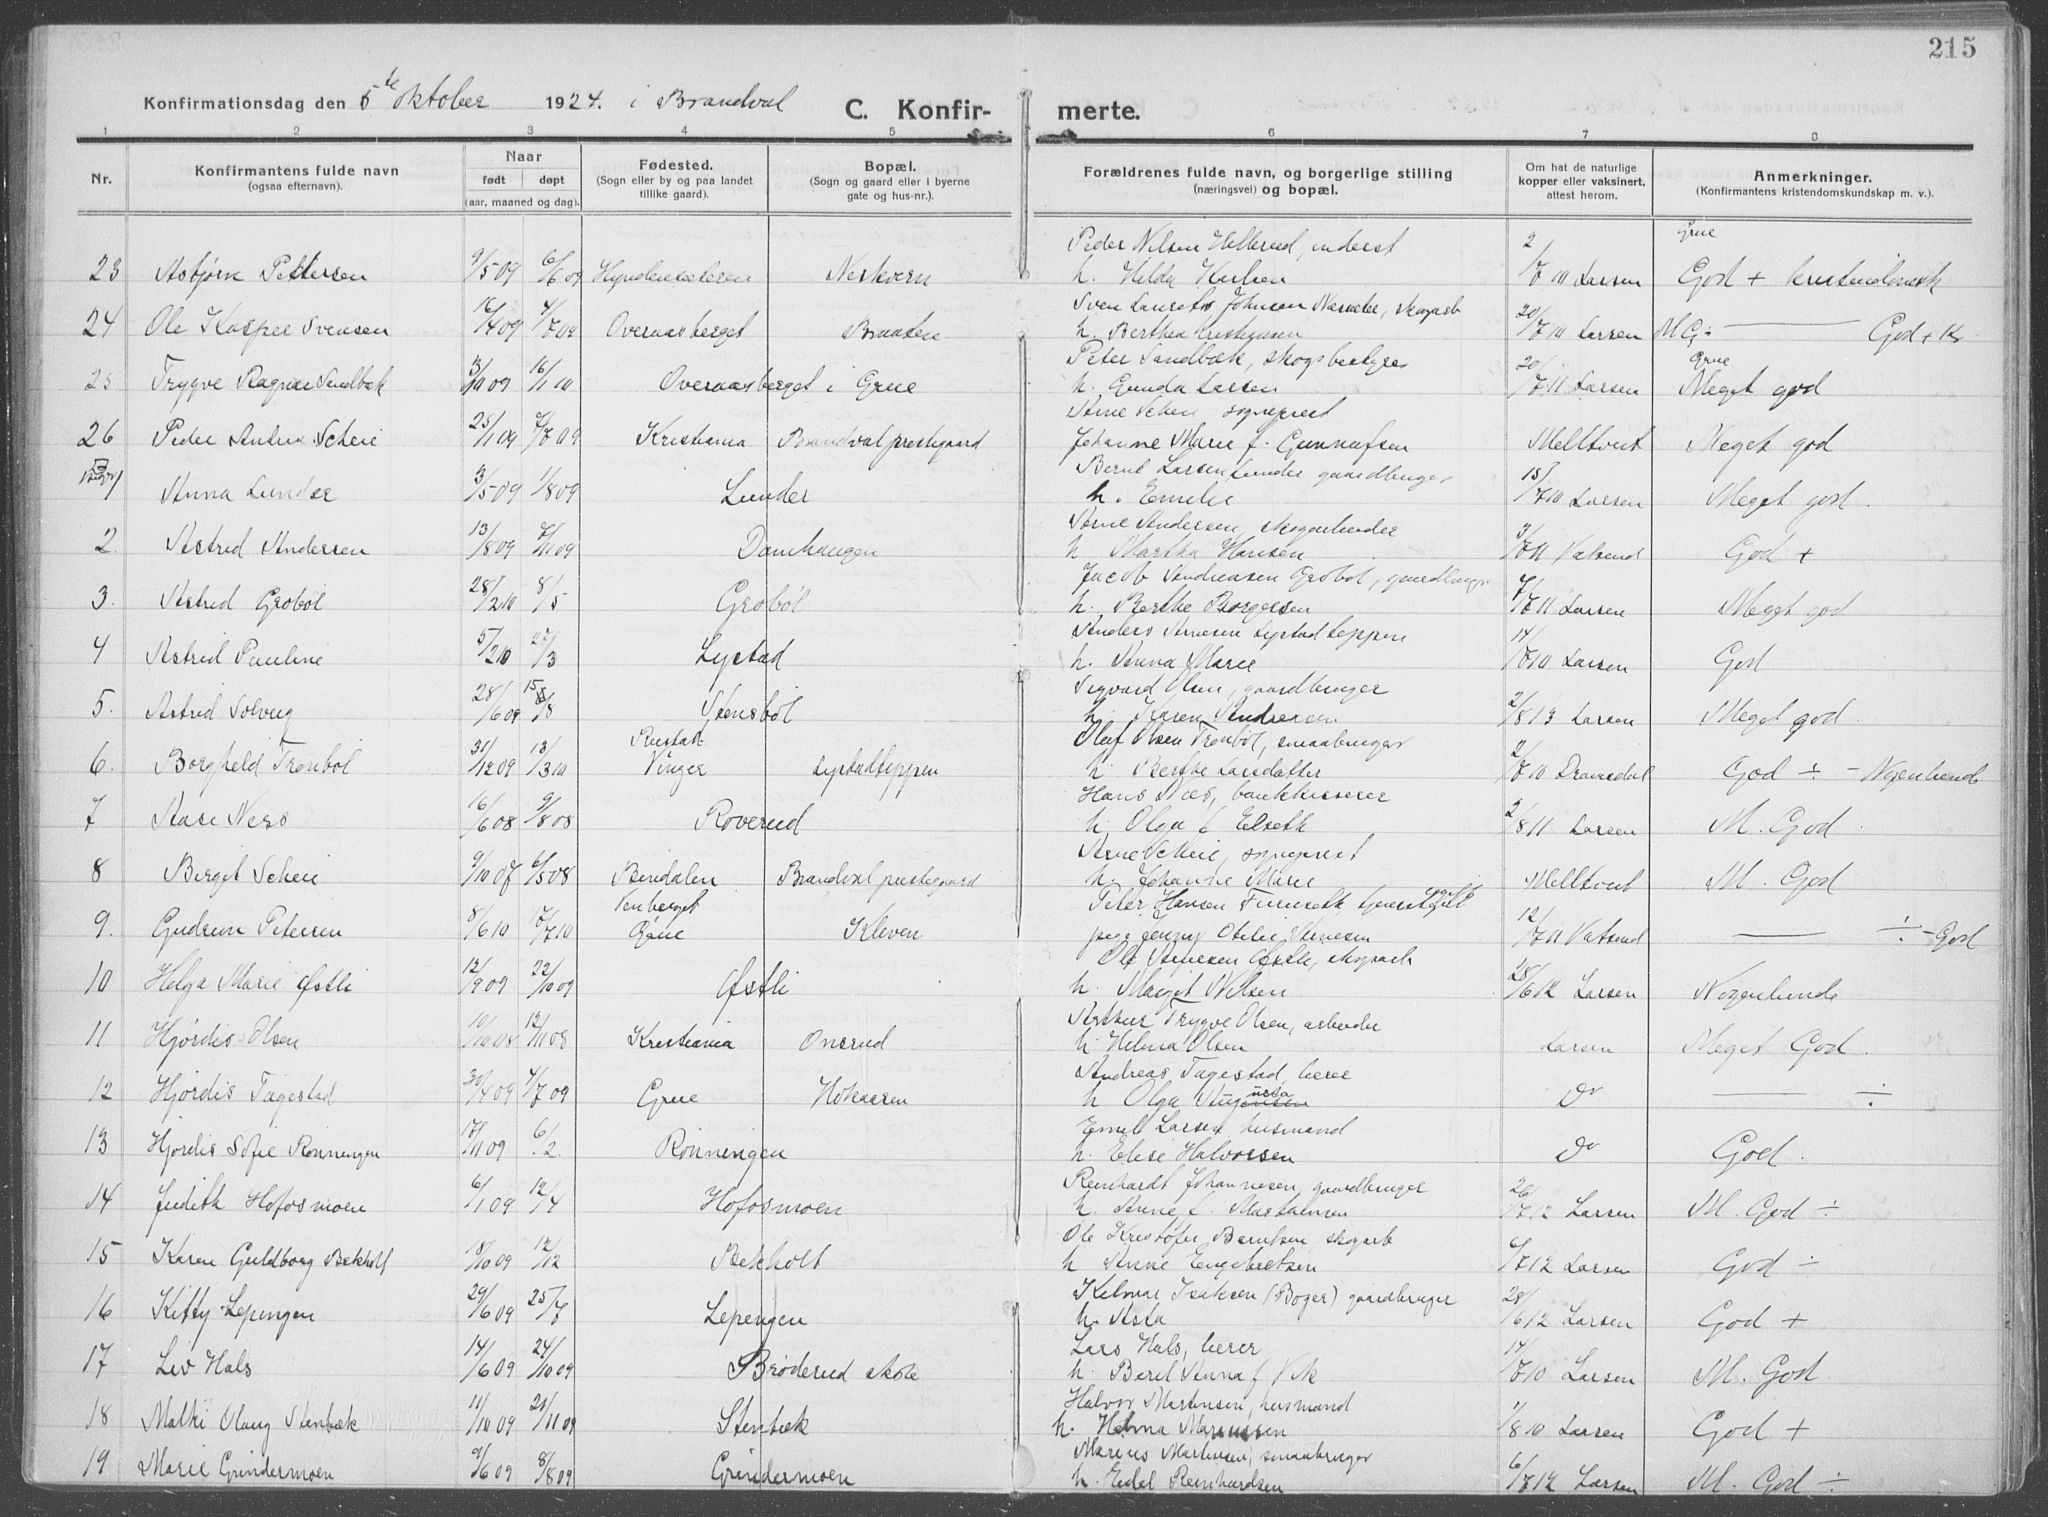 215
Konfirmationsdag den 5te oktober 1924. i Brandval
C. Konfirmerte.
1 2 3 4 5 6 7 8
Nr.
Konfirmantens fulde navn
(ogsaa efternavn).
Naar
født døpt
(aar, maaned og dag).
Fødested.
(Sogn eller by og paa landet
tillike gaard).
Bopæl.
(Sogn og gaard eller i byerne
gate og hus-nr.).
Forældrenes fulde navn, og borgerlige stilling
(næringsvei) og bopæl.
Om hat de naturlige
kopper eller vaksinert,
attest herom.
Anmerkninger.
(Konfirmantens kristendomskundskap m. v.).
Peder Nilsen Hellerud, inderst Grue
23 Asbjørn Pettersen 9/5 09 6/6 09 Neskvern h. Hilda 2/7 10 Larsen God +
Sven Johnsen skogarb
24 Ole Kasper Svensen 16/4 09 4/7 09 Overaasberget Braaten h. Bertha Kristiansen 20/7 10 Larsen M G ÷ God +
Peter Sandbæk, skogbestyrer Grue
25 Trygve Ragnar Sandbæk 3/10 09 16/1 10 Overaasberget i Grue h. Gunda Larsen 20/7 11 Larsen Meget god
Arne Scheie, sogneprest
26 Peder Andreas Scheie 25/1 09 4/7 09 Kristiania Brandval prestegaard Johanne Marie f. Gunnufsen Melltveit Meget god
Bernt Larsen Lunder gaardbruger
1 Anna Lunder 3/5 09 1/8 09 Lunder h. Emelie 15/7 10 Larsen Meget god.
Arne Andersen, skogarbeider
2. Astrid Andersen 13/8 09 7/11 09 Damhaugen h Martha Hansen 3/7 11 Vatsend God +
Jacob Andreasen Grøbøl, gaardbruger
3. Astrid Grøbøl 28/2 10 8/5 Grøbøl h. Berthe Borgersen 7/7 11 Larsen Meget god
Anders Arnesen Lystadteppen
4 Astrid Pauline 5/2 10 27/3 Lystad h. Anna Marie 14/7 10 Larsen God
Sigvard Olsen, gaardbruger
5. Astrid Solveig 28/6 09 15/8 Stensbøl h. Karen Andreasen 2/8 13 Larsen Meget god.
Rustad Oluf Olsen Trønbøl, smaabruger
6. Borghild Trønbøl 31/12 09 13/3 10 Vinger Lystadteppen h. Berthe Larsdatter 2/7 10 Dramsdal God ÷ - Nogenlunde
Hans Næs, bankkasserer
7 Aase Ness 16/6 08 9/8 08 Roverud h. Olga f. Elseth 2/8 11 Larsen M. God
Arne Scheie, sogneprest
8 Birgit Scheie 9/10 07 6/5 08 Bindalen Brandval prestegaard h. Johanne Marie Melltveit M. God
Peter Hansen Furuseth
9. Gudrun Petersen 8/6 10 17/7 10 Grue Kleven pige Jenny Otelie Arnesen 12/7 11 Vatsend ÷ - God
Ole Arnesen Østli, skogarb
10 Helga Marie Østli 12/9 09 22/10 09 Østli h. Margit Nilsen 28/6 12 Larsen Nogenlunde
Arthur Trygve Olsen, arbeider
11 Hjørdis Olsen 10/10 08 12/11 08 Kristiania Onsrud h Helma Olsen Larsen Meget God.
Andreas Tagestad, lærer
12 Hjørdis Tagestad 30/4 09 4/7 09 Grue Hokaasen h Olga Do ÷
Emil Larsen husmand
13 Hjørdis Sofie Rønningen 17/11 09 6/2. Rønningen h. Elise Halvorsen Do God.
Reinhardt Johannesen, gaardbruger
14 Judith Hofosmoen 6/1 09 12/4 Hofosmoen h. Anne f. Mastainsen 26/7 12 Larsen M. God ÷
Ole Kristofer Berntsen, skogarb
15 Karen Guldborg Bekholt 18/10 09 12/12 Bekholt h Anne Engebretsen 6/7 12 Larsen God ÷
Kelmar Isaksen (Boger) gaardbruger
16 Kitty Lepengen 29/6 09 25/7 Lepengen h. Asta 28/6 12 Larsen God +
Lars Hals, lærer
17 Liv Hals 14/6 09 24/10 09 Brøderud skole h. Beret Anna f Vik 14/7 10 Larsen M. God.
Halvor Martinsen, husmand
18 Malki Olaug Stenbæk 11/10 09 21/11 09 Stenbæk h. Helma Mariussen 1/8 10 Larsen God +
Marius Martinsen, smaabruger
19 Marie Grindermoen 9/6 09 8/8 09 Grindermoen h. Edel Reinhardsen 6/7 12 Larsen M. God ÷